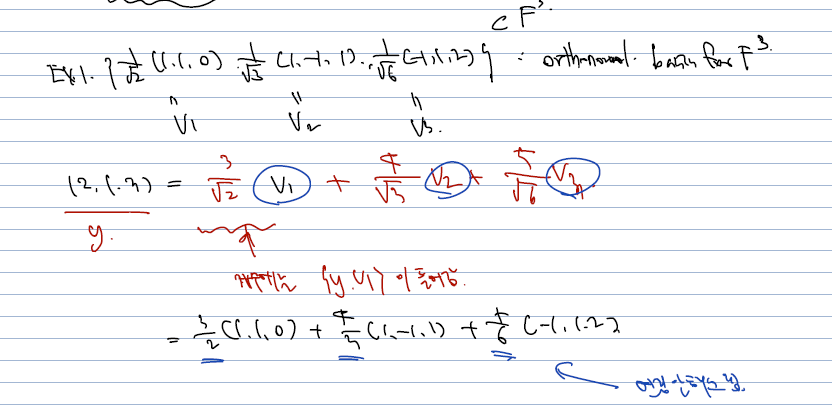 ⊂ F³.
EX1. {1/√2 (1,1,0), 1/√3 (1,-1,1), 1/√6 (-1,1,2)} : orthonormal basis for F³.
V₁ V₂ V₃.
(2,1,3) = 3/√2 V₁ + 4/√3 V₂ + 5/√6 V₃
y.
<y,V₁>
= 3/2 (1,1,0) + 4/3 (1,-1,1) + 5/6 (-1,1,2)